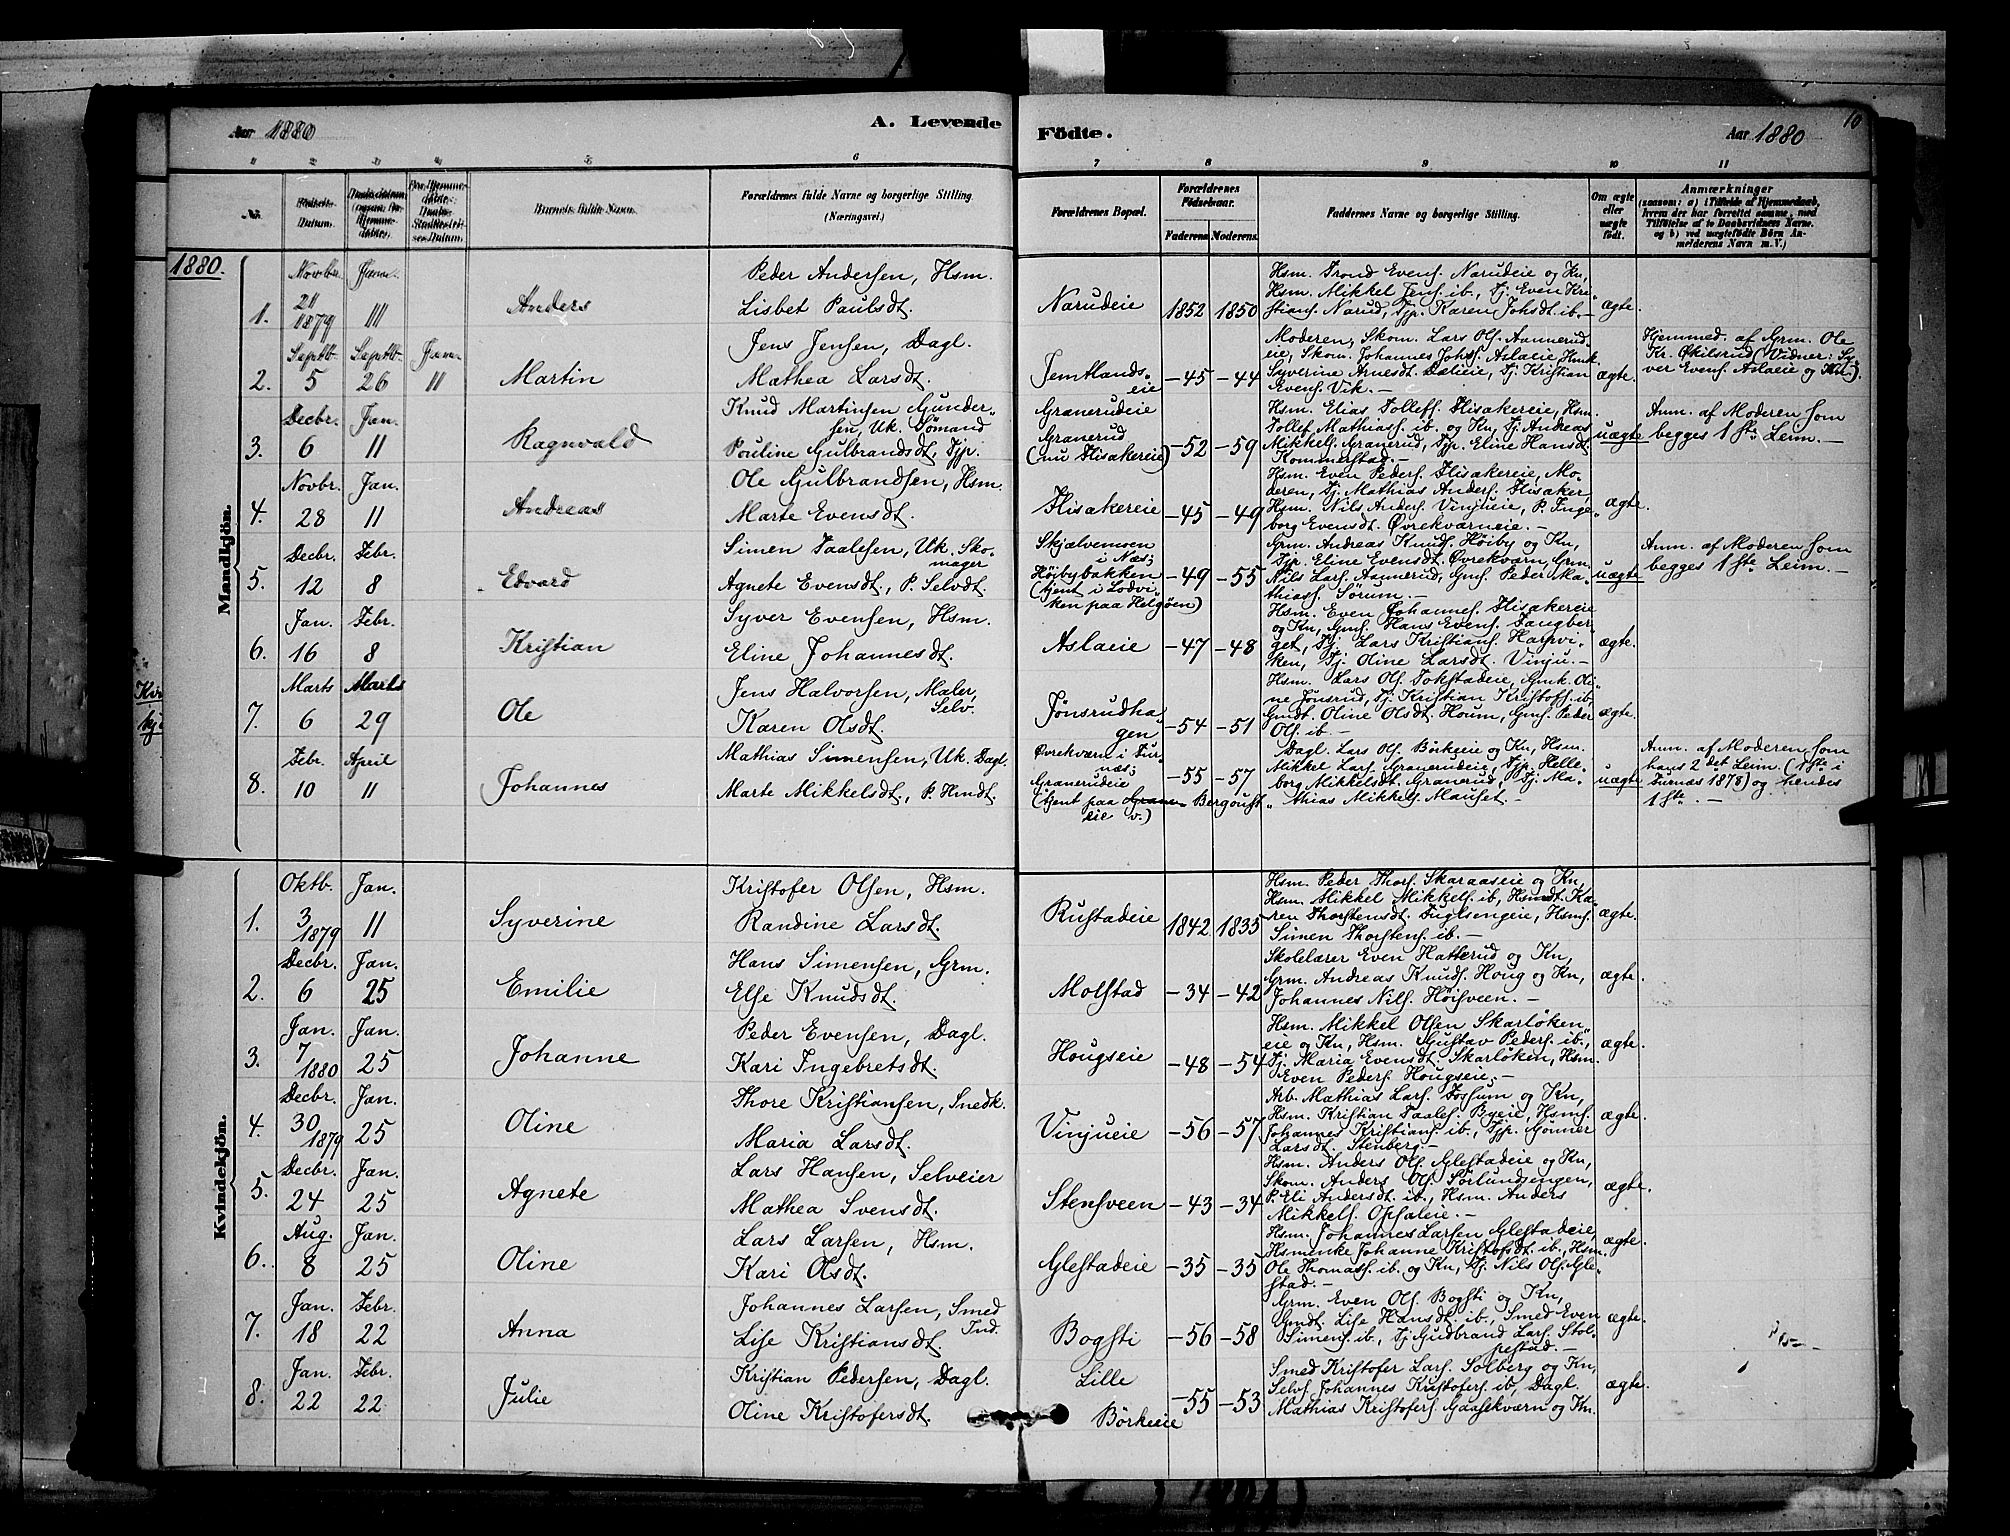 Aar 1880
A. Levende
Födte.
Aar 1880
10
1 2 3 4 5 6 7 8 9 10 11
No.
Födsels-Datum.
Barnets fulde Navn.
Forældrenes fulde Navne og borgerlige Stilling
(Næringsvei.)
Forældrenes Bopæl.
Forældrenes
Födselsaar.
Faderens.
Moderens.
Faddernes Navne og borgerlige Stilling.
Om ægte
eller
uægte
födt.
Anmærkninger
(saasom: a) i Tilfælde af Hjemmedaab,
hvem der har forrettet samme, med
Tilföielse af to Daabsvidners Navne.
og b) ved uægtefödte Börn An-
melderens Navn m. V.)
1880.
Mandkjön.
1.
Novbr. 21 1879
Janr. 11
Anders
Peder Andersen, Hsm.
Lisbet Paulsdt.
Narudeie
1852
1850
Hsm. Trond Evens. Narudeie og Kn,
Hsm. Mikkel Jens. ib., Tj. Even Kri-
stians. Narud, Tjp. Karen Johsdt. ib. –
ægte.
2.
Septb. 5
Septb. 26
Janr. 11
Martin
Jens Jensen, Dagl.
Mathea Larsdt.
Jemtlands-
eie
– 45
– 44
Moderen, Skom. Lars Ols. Aannerud-
eie, Skom. Johannes Johs. Aslaeie, Hmk.
Syverine Arnesdt. Dælieie, Tj. Kristian
Evens. Vik. –
ægte.
Hjemmed. af Grm. Ole
Kr. Økilsrud (Vidner: Sy-
ver Evens. Aslaeie og Kn).
3.
Decbr. 6
Jan. 11
Ragnvald
Knud Martinsen Gunder-
sen, Uk. Sømand
Pouline Gulbrandsdt, Tjp.
Granerudeie
Granerud
(nu Flisakereie)
– 52
– 59
Hsm. Elias Tollefs. Flisakereie, Hsm.
Tollef Mathias. ib. og Kn, Tj. Andreas
Mikkels. Granerud, Tjp. Eline Hansdt.
Kommerstad. –
uægte
Anm. af Moderen som
begges 1ste Leim. –
4.
Novbr. 28
Jan. 11
Andreas
Ole Gulbrandsen, Hsm.
Marte Evensdt.
Flisakereie
– 45
– 49
Hsm. Even Peders. Flisakereie, Mo-
deren, Tj. Mathias Anders. Flisaker,
Hsm. Nils Anders. Vinjueie, P. Inge-
borg Evensdt. Øvrekværneie. –
ægte.
5.
Decbr. 12
Febr. 8
Edvard
Simen Paalesen, Uk. Sko-
mager
Agnete Evensdt, P. Selvdt.
Skjælvemoen
i Næs;
Høibybakken
(tjent i Lodvi-
ken paa Helgøen)
– 49
– 55
Grm. Andreas Knuds. Høiby og Kn,
Tjp. Eline Evensdt. Øvrekværn, Grm.
Nils Lars. Aannerud, Gms. Peder Ma-
thias. Sørum. –
uægte
Anm. af Moderen som
begges 1ste Leim. –
6.
Jan. 16
Febr. 8
Kristian
Syver Evensen, Hsm.
Eline Johannesdt.
Aslaeie
– 47
– 48
Hsm. Even Johannes. Flisakereie
og Kn, Gms. Hans Evens. Taugber-
get, Tj. Lars Kristians. Harpvi-
ken, Tj. Oline Larsdt. Vinju. –
ægte.
7.
Marts 6
Marts 29
Ole
Jens Halvorsen, Maler,
Selv.
Karen Olsdt.
Jønsrudha-
gen
– 54
– 51
Hsm. Lars Ols. Tokstadeie, Gmk. Oli-
ne Jønsrud, Tj. Kristian Kristofs. ib,
Gmdt. Oline Olsdt. Houm, Gms. Peder
Ols. ib. –
ægte.
8.
Febr. 10
April 11
Johannes
Mathias Simensen, Uk. Dagl.
Marte Mikkelsdt, P. Hmdt.
Øvrekværn i Fur-
næs;
Granerudeie
(tjent paa Bergoust-
eie v.)
– 55
– 57
Dagl. Lars Ols. Børkeie og Kn, Hsm.
Mikkel Lars. Granerudeie, Tjp. Helle-
borg Mikkelsdt. Granerud, Tj. Ma-
thias Mikkels. Mauset. –
uægte
Anm. af Moderen som
hans 2det Leim. (1ste i
Furnæs 1878) og hendes
1ste. –
Kvindekjön.
1.
Oktb. 3 1879
Jan. 11
Syverine
Kristofer Olsen, Hsm.
Randine Larsdt.
Rustadeie
1842
1835
Hsm. Peder Thors. Skaraaseie og Kn,
Hsm. Mikkel Mikkels. ib, Hsmdt. Ka-
ren Thorstensdt. Fuglsengeie, Hsms.
Simen Thorstens. ib. –
ægte.
2.
Decbr. 6
Jan. 25
Emilie
Hans Simensen, Grm.
Else Knudsdt.
Molstad
– 34
– 42
Skolelærer Even Hatterud og Kn,
Grm. Andreas Knuds. Houg og Kn,
Johannes Nils. Høisveen. –
ægte.
3.
Jan. 7 1880
Jan. 25
Johanne
Peder Evensen, Dagl.
Kari Ingebretsdt.
Hougseie
– 48
– 54
Hsm. Mikkel Olsen Skarløken-
eie og Kn, Hsm. Gustav Peders. ib.,
Tj. Maria Evensdt. Skarløken, Hsm.
Even Peders. Hougseie. –
ægte.
4.
Decbr. 30 1879
Jan. 25
Oline
Thore Kristiansen, Snedk.
Maria Larsdt.
Vinjueie
– 56
– 57
Arb. Mathias Lars. Fossum og Kn,
Hsm. Kristian Paales. Byeie, Hsms.
Johannes Kristians. ib., Tjp. Gønner
Larsdt. Stenberg –
ægte.
5.
Decbr. 24
Jan. 25
Agnete
Lars Hansen, Selveier
Mathea Svensdt.
Stensveen
– 43
– 34
Hsm. Anders Ols. Glestadeie og Kn,
Skom. Anders Ols. Sørlundengen,
P. Eli Andersdt. ib., Hsm. Anders
Mikkels. Opsaleie. –
ægte.
6.
Aug. 8
Jan. 25
Oline
Lars Larsen, Hsm.
Kari Olsdt.
Glestadeie
– 35
– 35
Hsm. Johannes Larsen Glestadeie,
Hsmenke Johanne Kristofsdt. ib., Hsm.
Ole Thomass. ib. og Kn, Tj. Nils Ols. Gle-
stad. –
ægte.
7.
Jan. 18
Febr. 22
Anna
Johannes Larsen, Smed
Ind.
Lise Kristiansdt.
Bogsti
– 56
– 58
Grm. Even Ols. Bogsti og Kn,
Gmdt. Lise Hansdt. ib., Smed Even
Simens. ib., Tj. Gudbrand Lars. Stol-
pestad. –
ægte.
8.
Jan. 22
Febr. 22
Julie
Kristian Pedersen, Dagl.
Oline Kristofersdt.
Lille
Børkeeie
– 55
– 53
Smed Kristofer Lars. Solberg og Kn,
Selvs. Johannes Kristofers. ib, Dagl.
Mathias Kristofers. Gaasekværn og Kn.
ægte.